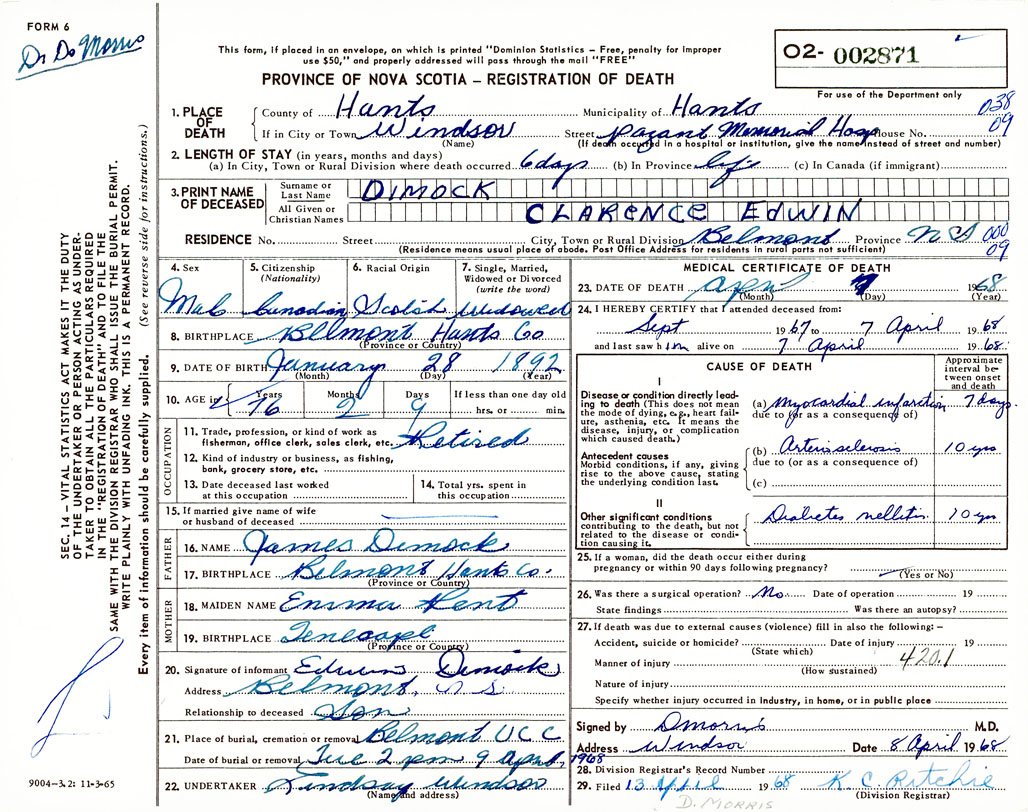 FORM 6
Dr Do Morris
This form, if placed in an envelope, on which is printed "Dominion Statistics – Free, penalty for improper
use $50," and properly addressed will pass through the mail "FREE"
PROVINCE OF NOVA SCOTIA – REGISTRATION OF DEATH
O2- 002871
For use of the Department only
1. PLACE OF DEATH
County of Hants Municipality of Hants 038
If in City or Town Windsor Street Payzant Memorial Hosp House No. 09
(Name) (If death occurred in a hospital or institution, give the name instead of street and number)
2. LENGTH OF STAY (in years, months and days)
(a) In City, Town or Rural Division where death occurred 6 days (b) In Province life (c) In Canada (if immigrant)
3. PRINT NAME OF DECEASED
Surname or Last Name DIMOCK
All Given or Christian Names CLARENCE EDWIN
RESIDENCE No. Street City, Town or Rural Division Belmont Province N S 000
(Residence means usual place of abode. Post Office Address for residents in rural parts not sufficient) 09
4. Sex 5. Citizenship (Nationality) 6. Racial Origin 7. Single, Married, Widowed or Divorced (write the word)
Male Canadian Scotish Widowed
8. BIRTHPLACE Belmont Hants Co
(Province or Country)
9. DATE OF BIRTH January 28 1892
(Month) (Day) (Year)
10. AGE in Years Months Days If less than one day old
76 2 9 hrs. or min.
OCCUPATION
11. Trade, profession, or kind of work as
fisherman, office clerk, sales clerk, etc. Retired
12. Kind of industry or business, as fishing,
bank, grocery store, etc.
13. Date deceased last worked
at this occupation
14. Total yrs. spent in
this occupation
15. If married give name of wife
or husband of deceased
FATHER
16. NAME James Dimock
17. BIRTHPLACE Belmont Hants Co.
(Province or Country)
MOTHER
18. MAIDEN NAME Emma Kent
19. BIRTHPLACE Tenecape
(Province or Country)
20. Signature of informant Edwin Dimock
Address Belmont, N. S.
Relationship to deceased Son
21. Place of burial, cremation or removal Belmont U C C
Date of burial or removal Tue 2 pm 9 April, 1968
22. UNDERTAKER Lindsay Windsor
(Name and address)
MEDICAL CERTIFICATE OF DEATH
23. DATE OF DEATH April 7 1968
(Month) (Day) (Year)
24. I HEREBY CERTIFY that I attended deceased from:
Sept 1967 to 7 April 1968
and last saw him alive on 7 April 1968
CAUSE OF DEATH
Approximate interval between onset and death
I
Disease or condition directly lead-
ing to death (This does not mean
the mode of dying, e.g., heart fail-
ure, asthenia, etc. It means the
disease, injury, or complication
which caused death.)
(a) Myocardial infarction 7 days
due to (or as a consequence of)
Antecedent causes
Morbid conditions, if any, giving
rise to the above cause, stating
the underlying condition last.
(b) Arteriosclerosis 10 yrs
due to (or as a consequence of)
(c)
II
Other significant conditions
contributing to the death, but not
related to the disease or condi-
tion causing it.
Diabetes mellitus 10 yrs
25. If a woman, did the death occur either during
pregnancy or within 90 days following pregnancy?
(Yes or No)
26. Was there a surgical operation? No Date of operation 19
State findings Was there an autopsy?
27. If death was due to external causes (violence) fill in also the following: –
Accident, suicide or homicide? Date of injury 19
(State which)
Manner of injury 420.1
(How sustained)
Nature of injury
Specify whether injury occurred in industry, in home, or in public place
Signed by D Morris M.D.
Address Windsor Date 8 April 1968
28. Division Registrar's Record Number
29. Filed 13 April 1968 K. C. Ritchie
(Division Registrar)
D. MORRIS
SEC. 14 – VITAL STATISTICS ACT MAKES IT THE DUTY
OF THE UNDERTAKER OR PERSON ACTING AS UNDER-
TAKER TO OBTAIN ALL THE PARTICULARS REQUIRED
IN THE "REGISTRATION OF DEATH" AND TO FILE THE
SAME WITH THE DIVISION REGISTRAR WHO SHALL ISSUE THE BURIAL PERMIT.
WRITE PLAINLY WITH UNFADING INK. THIS IS A PERMANENT RECORD.
Every item of information should be carefully supplied. (See reverse side for instructions.)
9004–3.2: 11-3-65